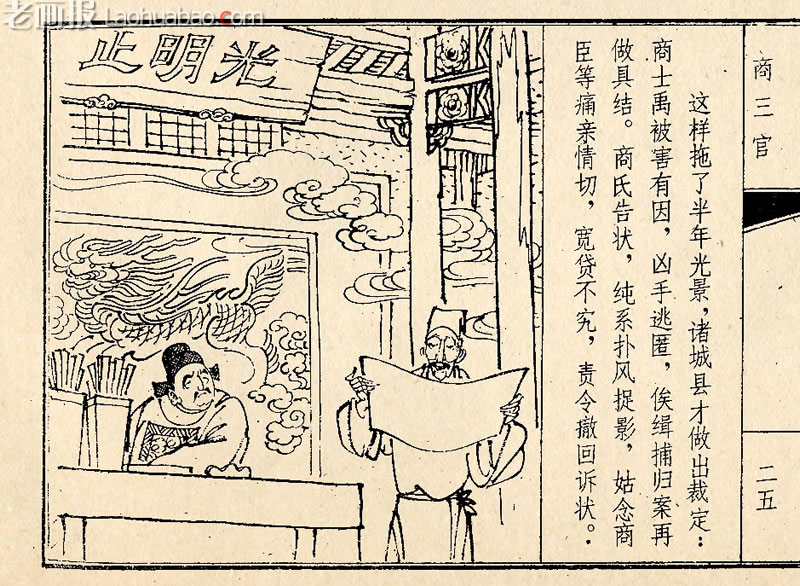 老画报
Laohuabao.com
光明正
商三官
这样拖了半年光景，诸城县才做出裁定：
商士禹被害有因，凶手逃匿，俟缉捕归案再
做具结。商氏告状，纯系扑风捉影，姑念商
臣等痛亲情切，宽贷不究，责令撤回诉状。
二五